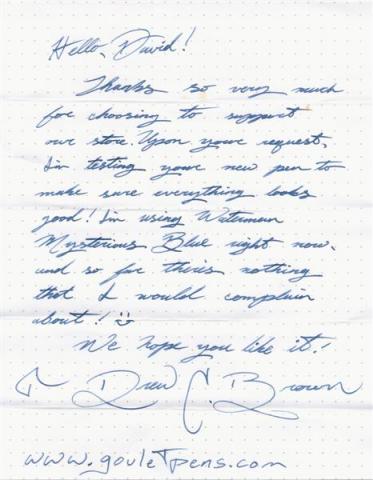 Hello, David!
Thanks so very much
for choosing to support
our store. Upon your request,
I'm testing your new pen to
make sure everything looks
good! I'm using Waterman
Mysterious Blue right now.
and so far there's nothing
that I would complain
about! :)
We hope you like it!
Drew C. Brown
www.gouletpens.com